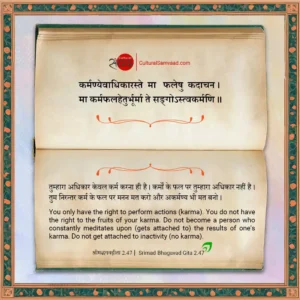 CulturalSamvaad.com
कर्मण्येवाधिकारस्ते मा फलेषु कदाचन।
मा कर्मफलहेतुर्भूर्मा ते सङ्गोऽस्त्वकर्मणि॥
तुम्हारा अधिकार केवल कर्म करना ही है। कर्मों के फल पर तुम्हारा अधिकार नहीं है।
तुम निरन्तर कर्म के फल पर मनन मत करो और अकर्मण्य भी मत बनो।
You only have the right to perform actions (karma). You do not have
the right to the fruits of your karma. Do not become a person who
constantly meditates upon (gets attached to) the results of one's
karma. Do not get attached to inactivity (no karma).
श्रीमद्भगवद्गीता 2.47 | Srimad Bhagavad Gita 2.47